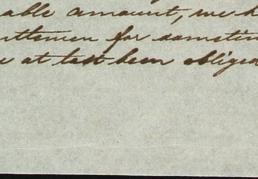 able amount, we h
ntlemen for sometim
e at last been obliged